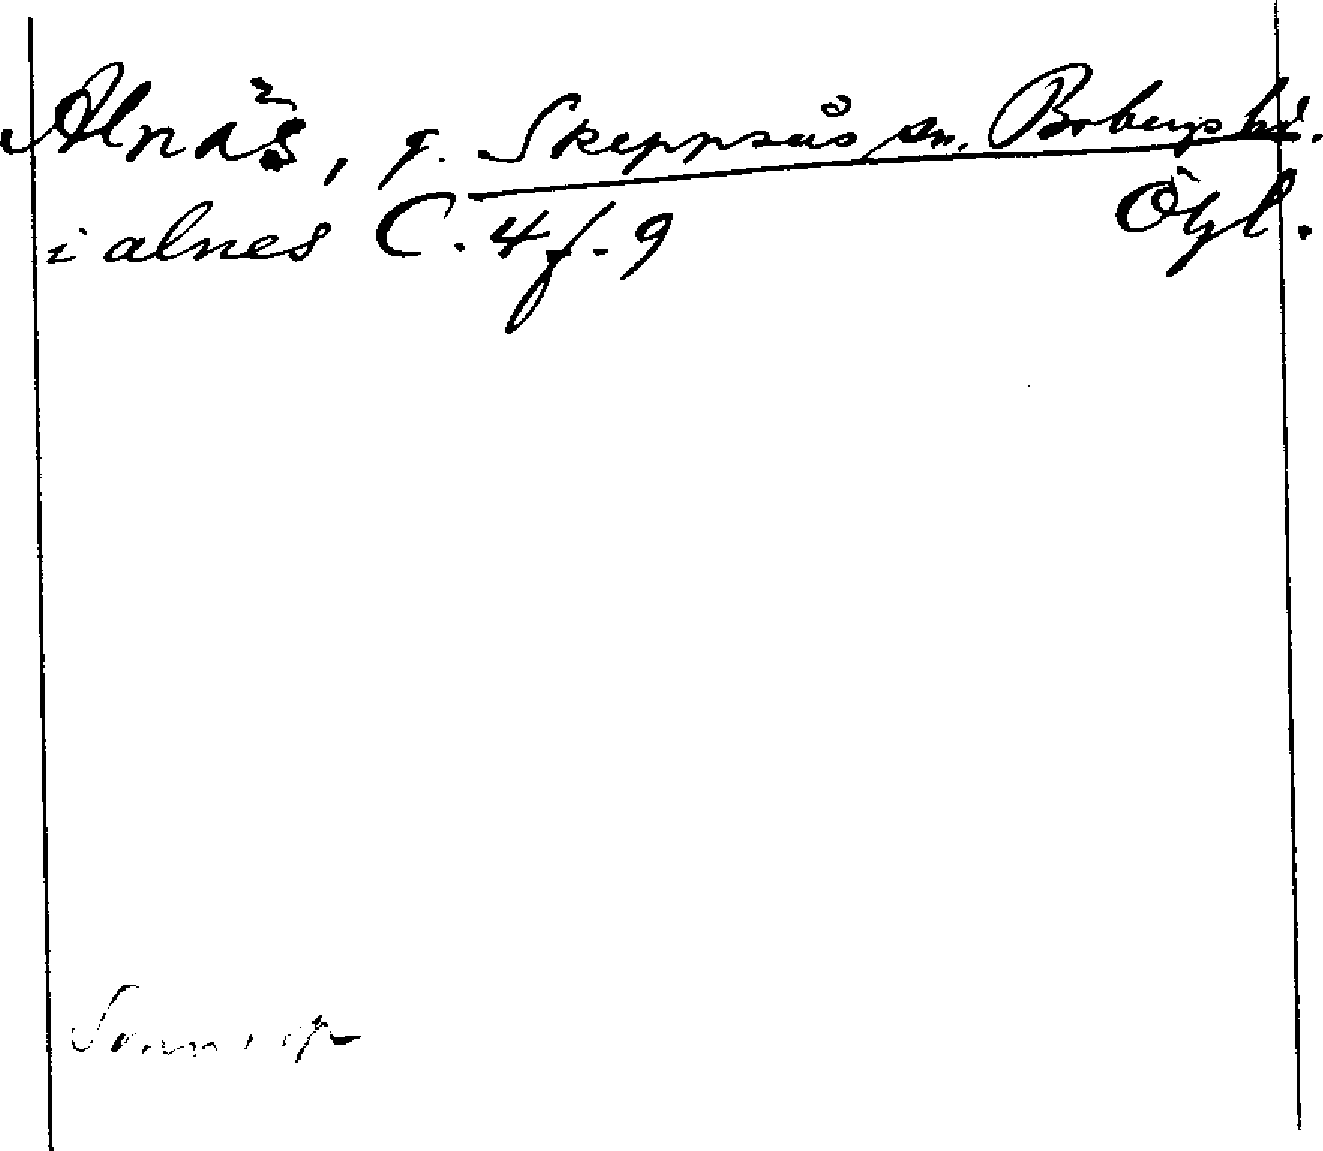 Alnäs, g. Skeppsås sn. Bobergs hd.
Ögl.
i alnes C. 4 f. 9